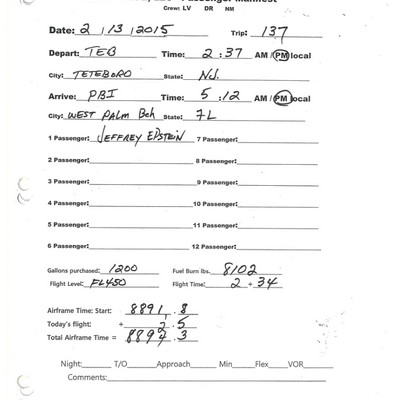 Passenger Manifest
Crew: LV DR NM
Date: 2 / 13 / 2015 Trip: 137
Depart: TEB Time: 2 : 37 AM / PM local
City: TETEBORO State: NJ.
Arrive: PBI Time: 5 : 12 AM / PM local
City: WEST PALM Bch State: FL
1 Passenger: JEFFREY EPSTEIN 7 Passenger:
2 Passenger: 8 Passenger:
3 Passenger: 9 Passenger:
4 Passenger: 10 Passenger:
5 Passenger: 11 Passenger:
6 Passenger: 12 Passenger:
Gallons purchased: 1200 Fuel Burn lbs. 8102
Flight Level: FL450 Flight Time: 2 + 34
Airframe Time: Start: 8891 . 8
Today's flight: + 2 . 5
Total Airframe Time = 8894 . 3
Night: T/O Approach Min Flex VOR
Comments: